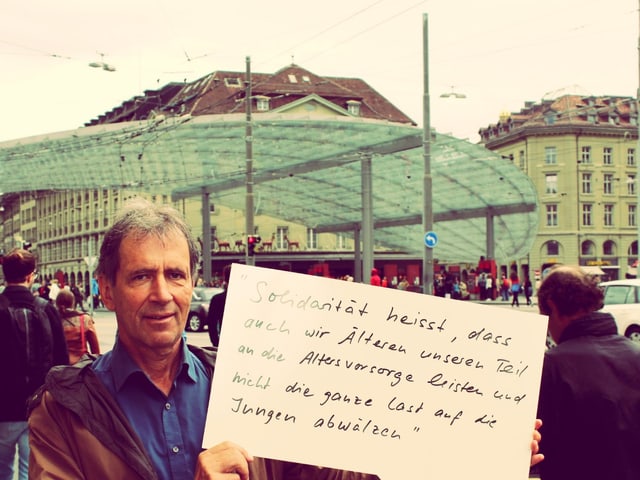 "Solidarität heisst, dass
auch wir Älteren unseren Teil
an die Altersvorsorge leisten und
nicht die ganze Last auf die
Jungen abwälzen"